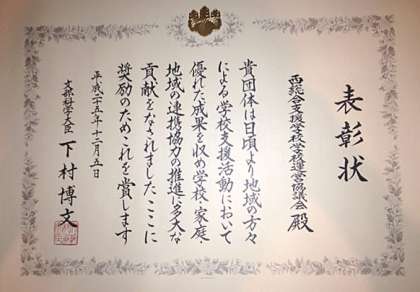 表彰状
西総合支援学校学校運営協議会 殿
貴団体は日頃より地域の方々
による学校支援活動において
優れた成果を収め学校・家庭・
地域の連携協力の推進に多大な
貢献をなされました ここに
奨励のためこれを賞します
平成二十五年十二月五日
文部科学大臣 下村博文